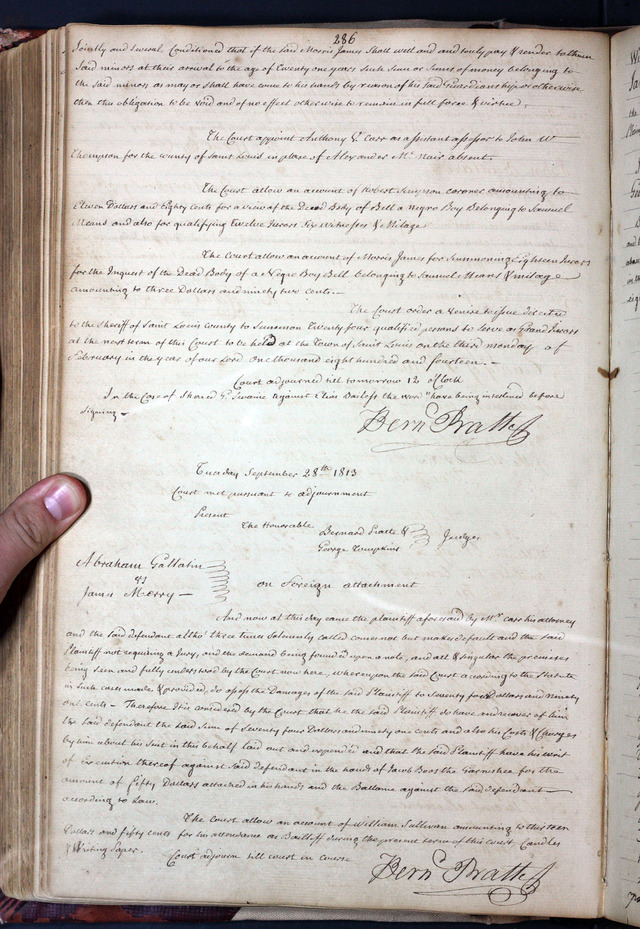 286
Jointly and several Conditioned that if the said Morris James Shall well and and truly pay & render to them
Said minors at their arrival to the age of Twenty one years such Sum or Sums of money belonging to
the said minors as may or shall have come to his hands by reason of his said Guardianship or otherwise
then this obligation to be void and of no effect otherwise to remain in full force & virtue.
The Court appoint Anthony V. Carr as assistant assessor to John W
Thompson for the county of Saint Louis in place of Alexander Mc Nair absent.
The Court allow an account of Robert Simpson coroner amounting to
Eleven Dollars and Eighty Cents for a view of the Dead Body of Bell a negro Boy Belonging to Samuel
Means and also for qualifying Twelve Jurors Six Witnesses & Milage
The Court allow an account of Morris James for Summoning Eighteen Jurors
for the Inquest of the Dead Body of a Negro Boy Bell belonging to Samuel Means & milage
amounting to three Dollars and ninety two cents.—
The Court order a Venire to issue directed
to the Sheriff of Saint Louis county to Summon Twenty four qualified persons to serve as Grand Jurors
at the next term of this Court to be held at the Town of Saint Louis on the third monday of
February in the year of our Lord one thousand eight hundred and fourteen.—
Court adjourned till tomorrow 12 oClock
In the Case of G. against Elias the word "have being interlined before
Signing—
Bernd Pratte
Tuesday September 28th 1813
Court met pursuant to adjournment
Present
The Honorable Bernard Pratte &
George Tompkins Judges
Abraham Gallatin
vs
James Morry —
on Foreign attachment
And now at this day came the plaintiff aforesaid by Mr. Carr his attorney
and the said defendant altho' three times Solemnly called comes not but makes default and the Said
Plaintiff not requiring a Jury, and the demand being founded upon a note, and all & singular the premises
being Seen and fully understood by the Court now here, whereupon the said Court according to the Statute
in Such cases made & provided, do assess the Damages of the Said Plaintiff to Seventy four Dollars and ninety
one Cents — Therefore it is considered by the Court that he the said Plaintiff do have and recover of him
the said defendant the Said Sum of Seventy four Dollars and ninety one cents and also his Costs & Charges
by him about his Suit in this behalf laid out and expended and that the said Plaintiff have his writ
of Execution thereof against Said defendant in the hands of Jacob Boos the Garnishee for the
amount of Fifty Dollars attached in his hands and the Ballance against the said defendant —
according to Law.
The Court allow an account of William Sullivan amounting to thirteen
Dollars and fifty cents for his attendance as Bailiff during the present term of this Court Candles
& Writing Paper.
Court adjourn till court in course
Bernd Pratte